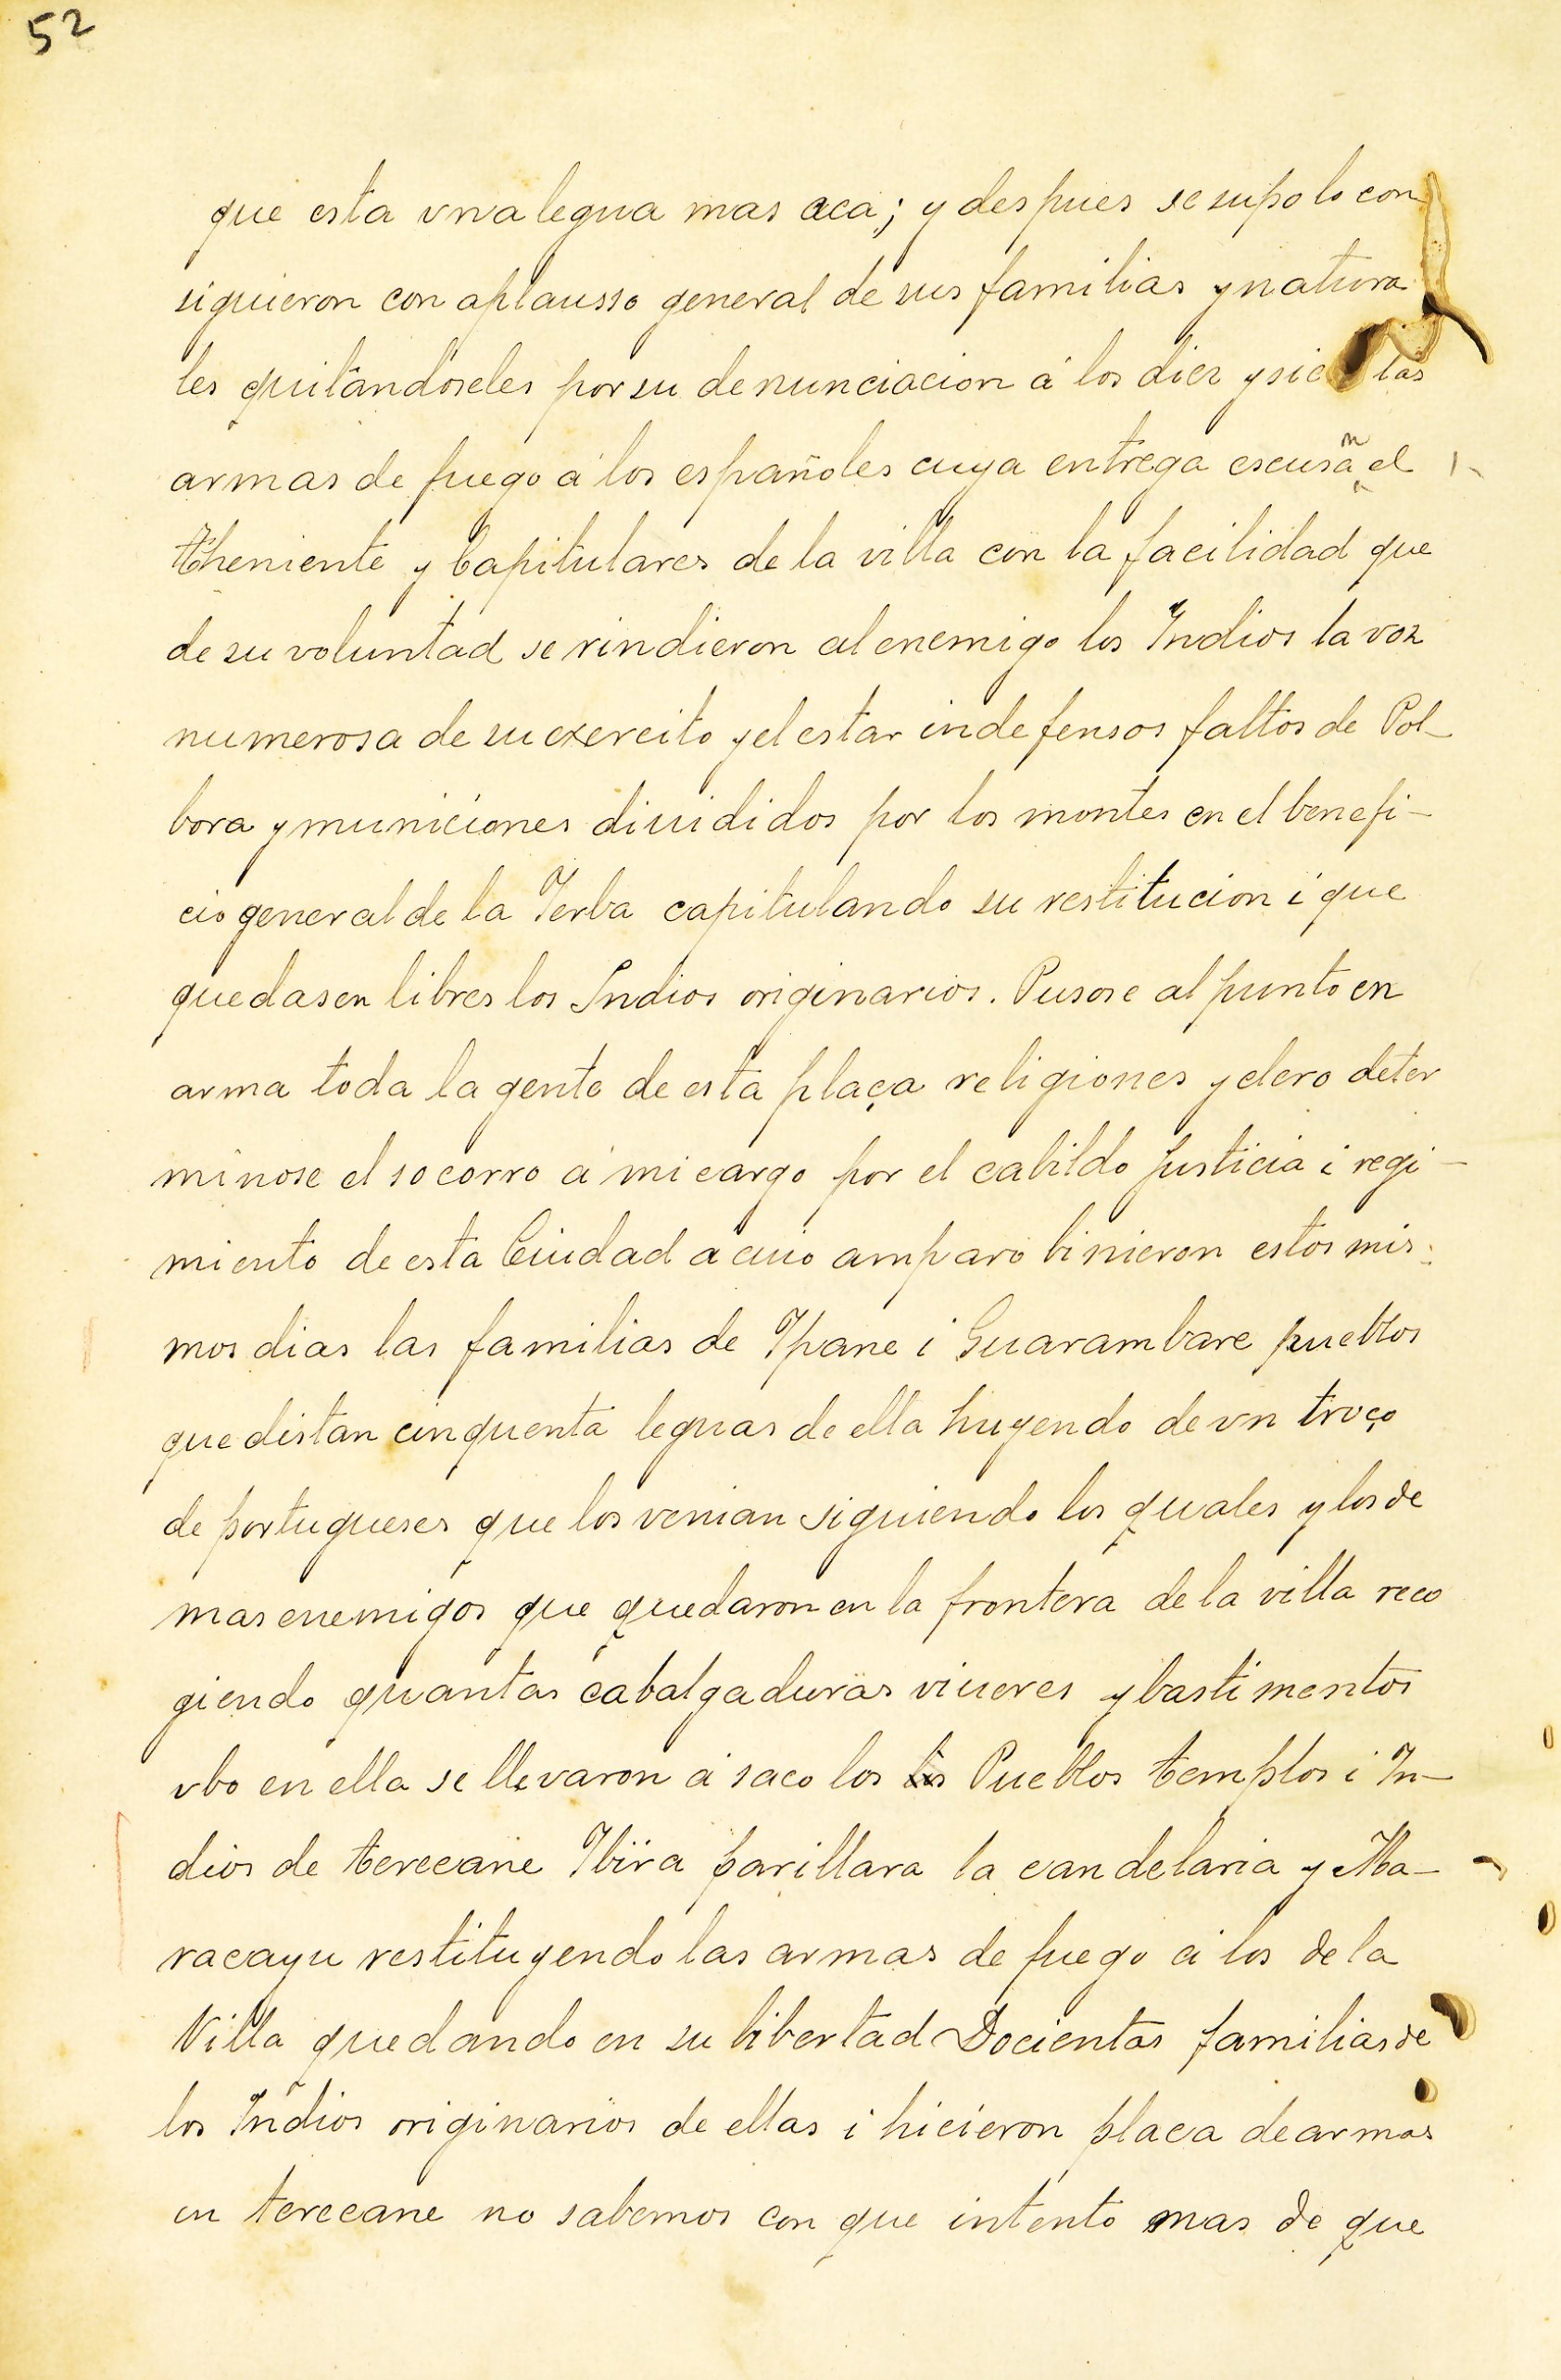 52
que esta vna legua mas aca; y despues se supo lo con
siguieron con aplausso general de sus familias y natura
les quitandoseles por su denunciacion á los diez y sie las
armas de fuego á los españoles cuya entrega escusãn el
Theniente y Capitulares de la villa con la facilidad que
de su voluntad se rindieron al enemigo los Indios la voz
numerosa de su exercito y el estar indefensos faltos de Pol-
bora y municiones diuididos por los montes en el benefi-
cio general de la Yerba capitulando su restitucion i que
quedasen libres los Indios originarios. Pusose al punto en
arma toda la gente de esta plaça religiones y clero deter
minose el socorro á mi cargo por el cabildo justicia i regi-
miento de esta Ciudad a cuio amparo binieron estos mis-
mos dias las familias de Ypane i Guarambare pueblos
que distan cinquenta leguas de ella huyendo de vn troço
de portugueses que los venian siguiendo los quales y los de
mas enemigos que quedaron en la frontera de la villa reco
giendo quantas cabalgaduras viueres y bastimentos
vbo en ella se llevaron á saco los Pueblos templos i In-
dios de terecane Ybira parillara la candelaria y Ma-
racayu restituyendo las armas de fuego á los de la
Villa quedando en su libertad Docientas familias de
los Indios originarios de ellas i hicieron placa de armas
en terecane no sabemos con que intento mas de que